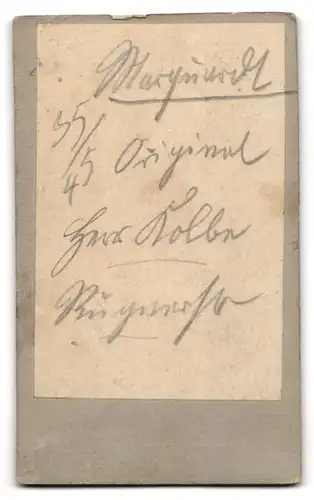 Marquardt
35/45 Original
Herr Kolbe